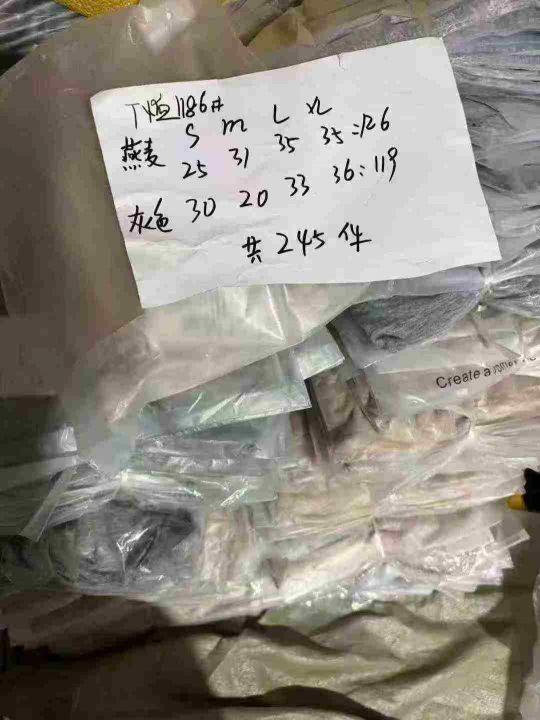 T恤1186#
S M L XL
燕麦 25 31 35 35=126
灰色 30 20 33 36:119
共245件
Create a